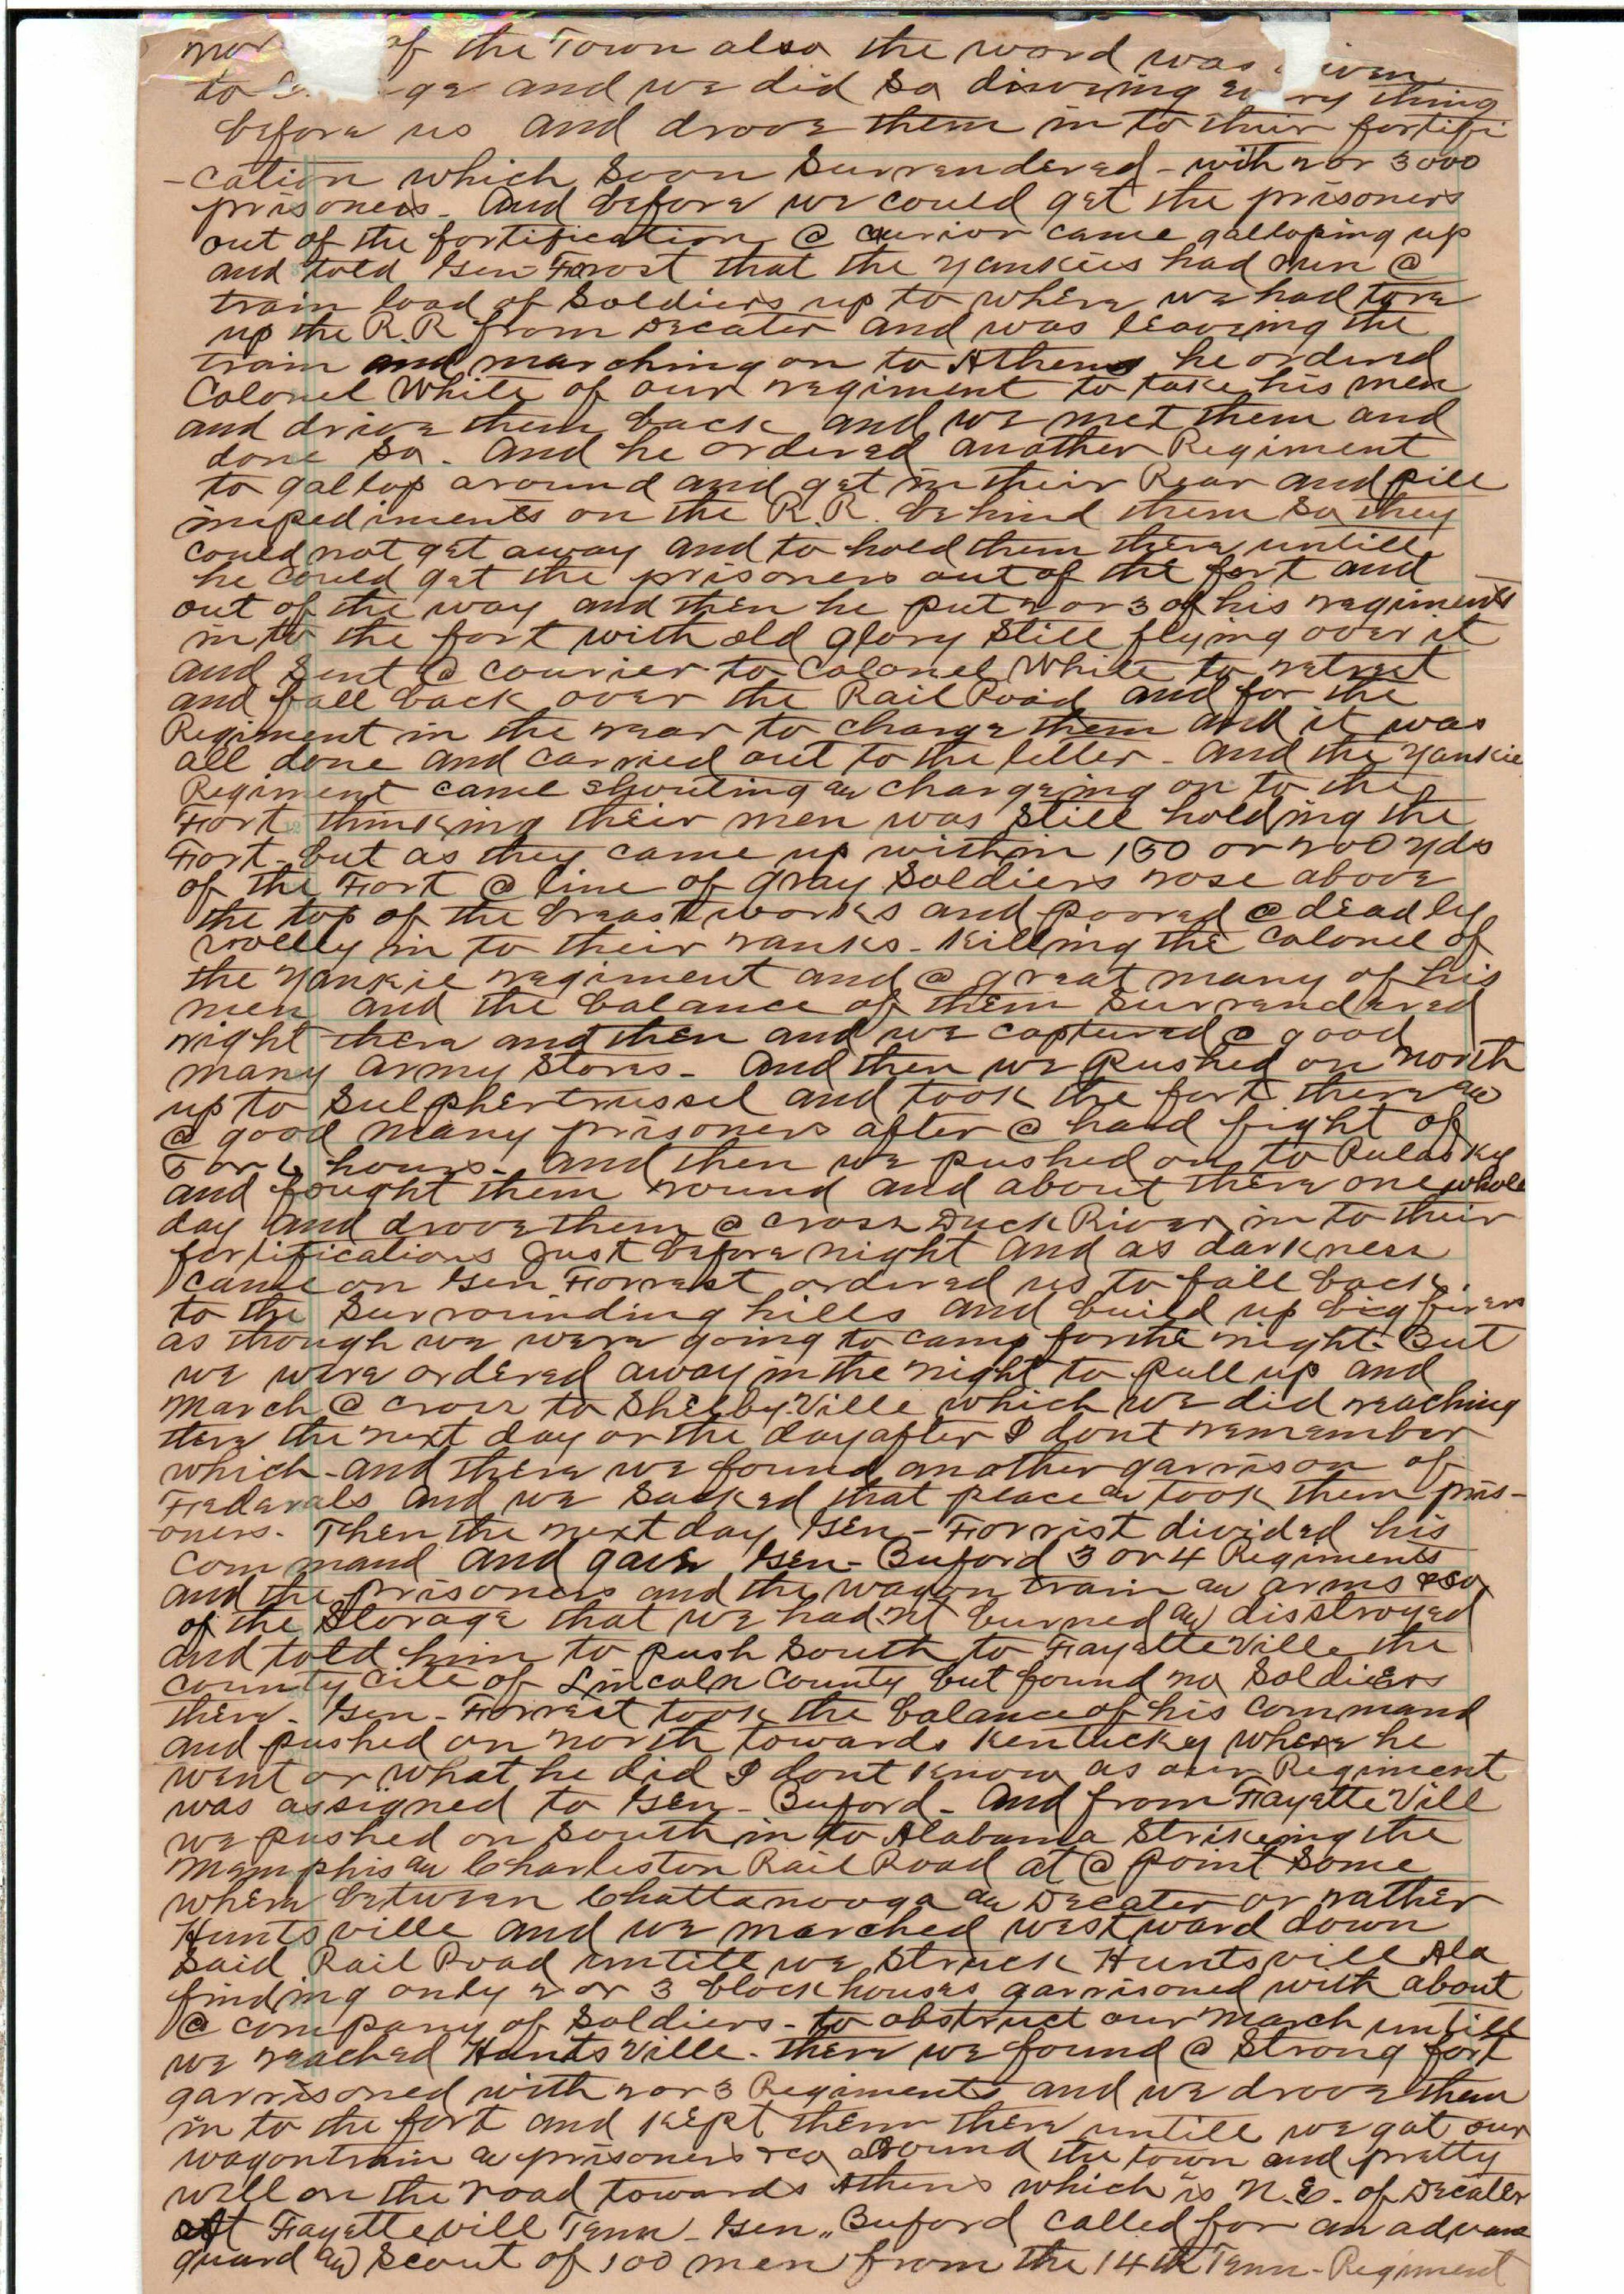 of the Town also the word was given
to and we did so driveing every thing
before us and droove them in to their fortifi
-cation which soon Surrendered - with 2 or 3000
prisoners - And before we could get the prisoners
out of the fortification @ Courior came galloping up
and told Gen Forrost that the yankies had run @
train load of Soldiers up to where we had tore
up the R.R from Decater and was leaveing the
train and marching on to Athens he ordered
Colonel White of our regiment to take his men
and drive them back and we met them and
done so. And he ordered another Regiment
to gallop around and get in their Rear and pill
impediments on the R.R. behind them So they
could not get away and to hold them there untill
he could get the prisoners out of the fort and
out of the way and then he put 2 or 3 of his regiments
in to the fort with old glory Still flying over it
and Sent @ courier to Colonel White to retreet
and fall back over the Rail Road and for the
Regiment in the rear to charge them and it was
all done and carried out to the letter - and the yankie
Regiment came Shouting an chargeing on to the
Fort thinking their men was Still holding the
Fort - but as they came up within 150 or 200 yds
of the Fort @ line of gray Soldiers rose above
the top of the breast works and poored @ deadly
volley in to their ranks - Killing the colonel of
the yankie regiment and @ great many of his
men and the balance of them Surrendered
right there and then and we captured @ good
many Army Stores - And then we Pushed on North
up to Sulphertrussel and took the fort there an
@ good many prisoners after @ hard fight of
5 or 6 hours - And then we pushed on to Pulasky
and fought them round and about there one whole
day and droove them @ cross Duck River in to their
fortifications Just before night and as darkness
came on Gen Forrest ordered us to fall back
to the Surrounding hills and build up big fires
as though we were going to camp for the night - But
we were ordered away in the night to Pull up and
March @ cross to Shelbyville which we did reaching
there the next day or the day after I dont remember
which - and there we found another garrison of
Federals and we Sacked that place an took them pris-
-oners. Then the next day Gen - Forrist divided his
command and gave Gen - Buford 3 or 4 Regiments
and the prisoners and the wagon train an arms &co
of the Storage that we had nt burned an disstroyed
and told him to push South to Fayetteville the
county cite of Lincoln County but found no Soldiers
there - Gen - Forrest took the balance of his command
and pushed on north towards Kentucky where he
went or what he did I dont know as our Regiment
was assigned to Gen - Buford - And from FayetteVill
we pushed on South in to Alabama Strikeing the
Memphis an Charleston Rail Road at @ point Some
where between Chattanooga an Decater or rather
Huntsville and we marched westward down
Said Rail Road untill we Struck Huntsvill Ala
finding only 2 or 3 block houses garrisoned with about
@ company of Soldiers - to obstruct our march untill
we reached HuntsVille - there we found @ Strong fort
garrisoned with 2 or 3 Regiments and we droove them
in to the fort and Kept them there untill we got our
wagontrain an prisoners &co around the town and pretty
well on the road towards Athens which is N.E. of Decater
At Fayettevill Tenn - Gen - Buford called for an advance
guard an Scout of 100 men from the 14th Tenn - Regiment